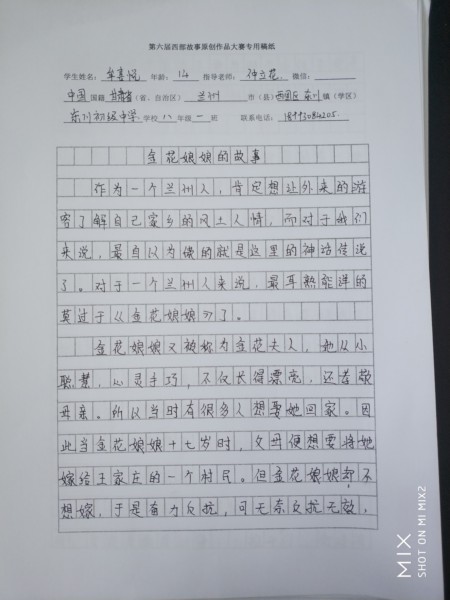 第六届西部故事原创作品大赛专用稿纸
学生姓名：牟喜悦 年龄：14 指导老师：钟立花 微信：
中国 国籍 甘肃省（省、自治区） 兰州 市（县）西固区 东川 镇（学区）
东川初级中学 学校 八 年级 一 班 联系电话：18993084205
金花娘娘的故事
作为一个兰州人，肯定想让外来的游
客了解自己家乡的风土人情，而对于我们
来说，最自以为傲的就是这里的神话传说
了。对于一个兰州人来说，最耳熟能洋的
莫过于《金花娘娘》了。
金花娘娘又被称为金花夫人，她从小
聪慧，心灵手巧，不仅长得漂亮，还孝敬
母亲。所以当时有很多人想娶她回家。因
此当金花娘娘十七岁时，父母便想要将她
嫁给王家庄的一个村民。但金花娘娘却不
想嫁，于是奋力反抗，可无奈反抗无效，
MIX
SHOT ON MI MIX2